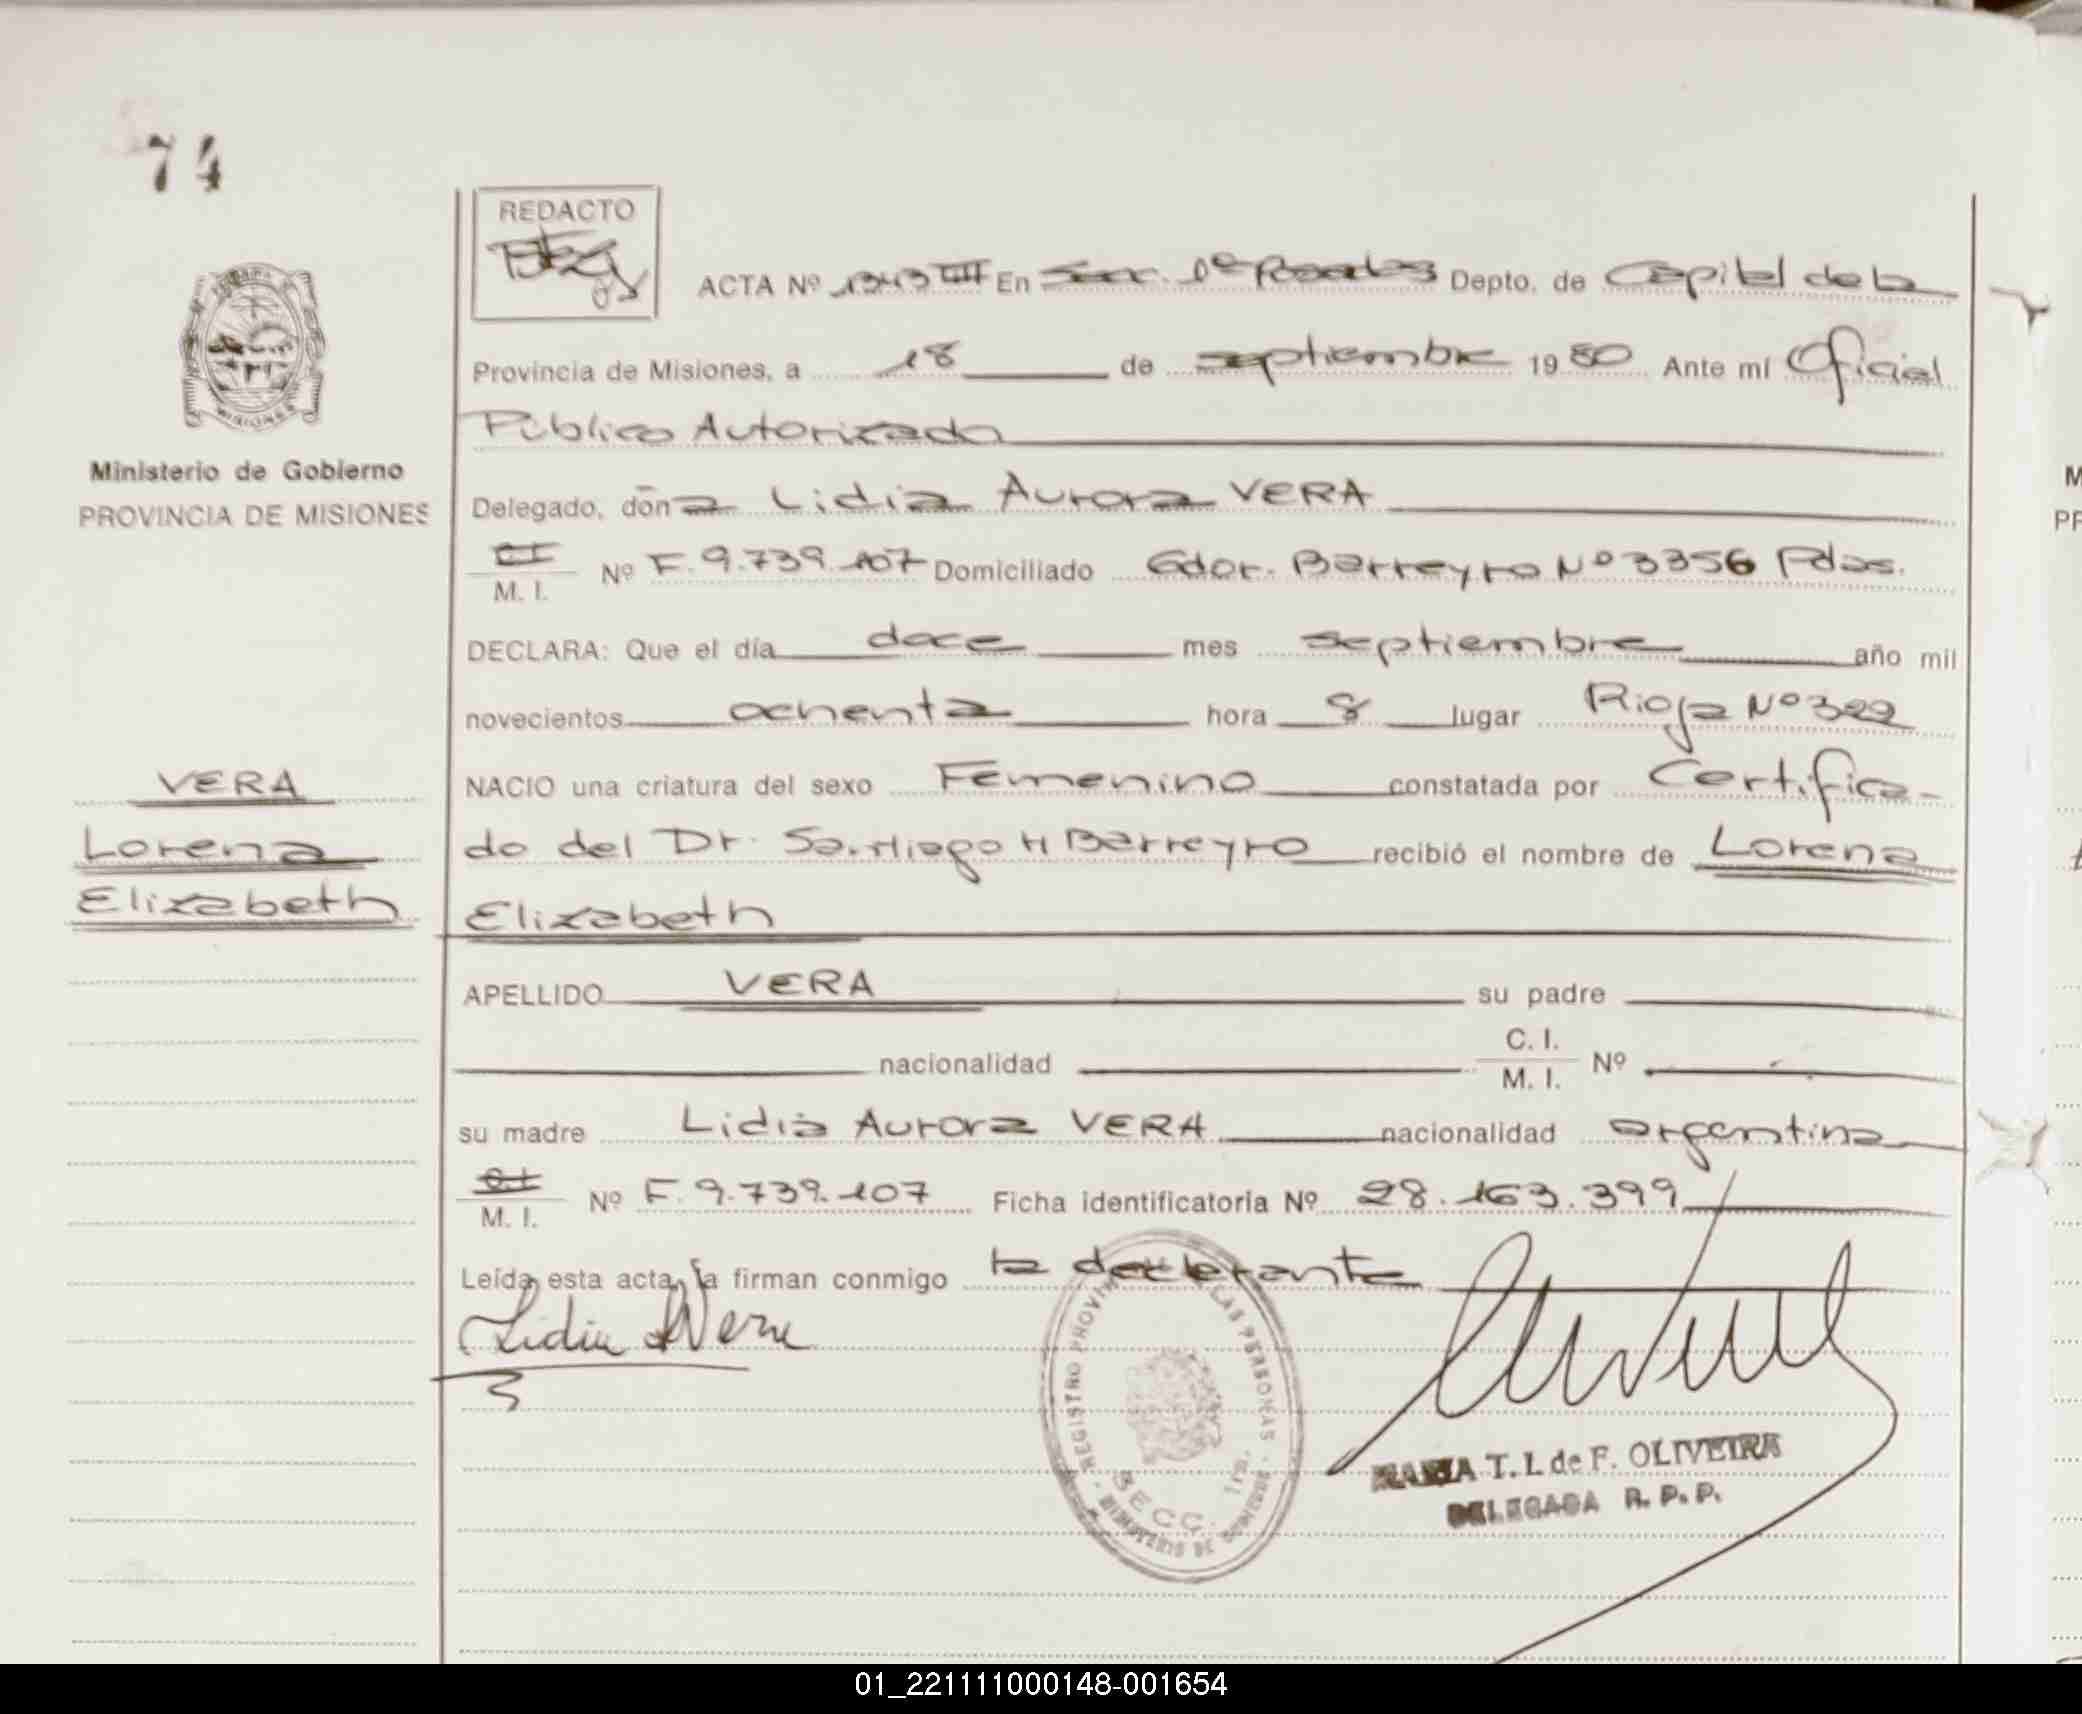 74
REDACTO
ACTA Nº 1343 III En Secc. 1º Posadas Depto. de Capital de la
Provincia de Misiones, a 18 de septiembre 1980 Ante mí Oficial
Público Autorizado
Delegado, doña Lidia Aurora VERA
C I
M. I. Nº F. 9.739.107 Domiciliado Gdor. Barreyro Nº 3356 Pdas.
Ministerio de Gobierno
PROVINCIA DE MISIONES
DECLARA: Que el día doce mes septiembre año mil
novecientos ochenta hora 8 lugar Rioja Nº 322
NACIO una criatura del sexo Femenino constatada por Certifica-
do del Dr. Santiago H Barreyro recibió el nombre de Lorena
Elizabeth
VERA
Lorena
Elizabeth
APELLIDO VERA su padre
nacionalidad C. I. Nº
M. I.
su madre Lidia Aurora VERA nacionalidad argentina
C I
M. I. Nº F. 9.739.107 Ficha identificatoria Nº 28.163.399
Leída esta acta, la firman conmigo la declarante
Lidia A Vera
REGISTRO PROVINCIAL DE LAS PERSONAS
SECC. 1ra.
MINISTERIO DE GOBIERNO
MARIA T. I. de F. OLIVEIRA
DELEGADA R. P. P.
01_221111000148-001654